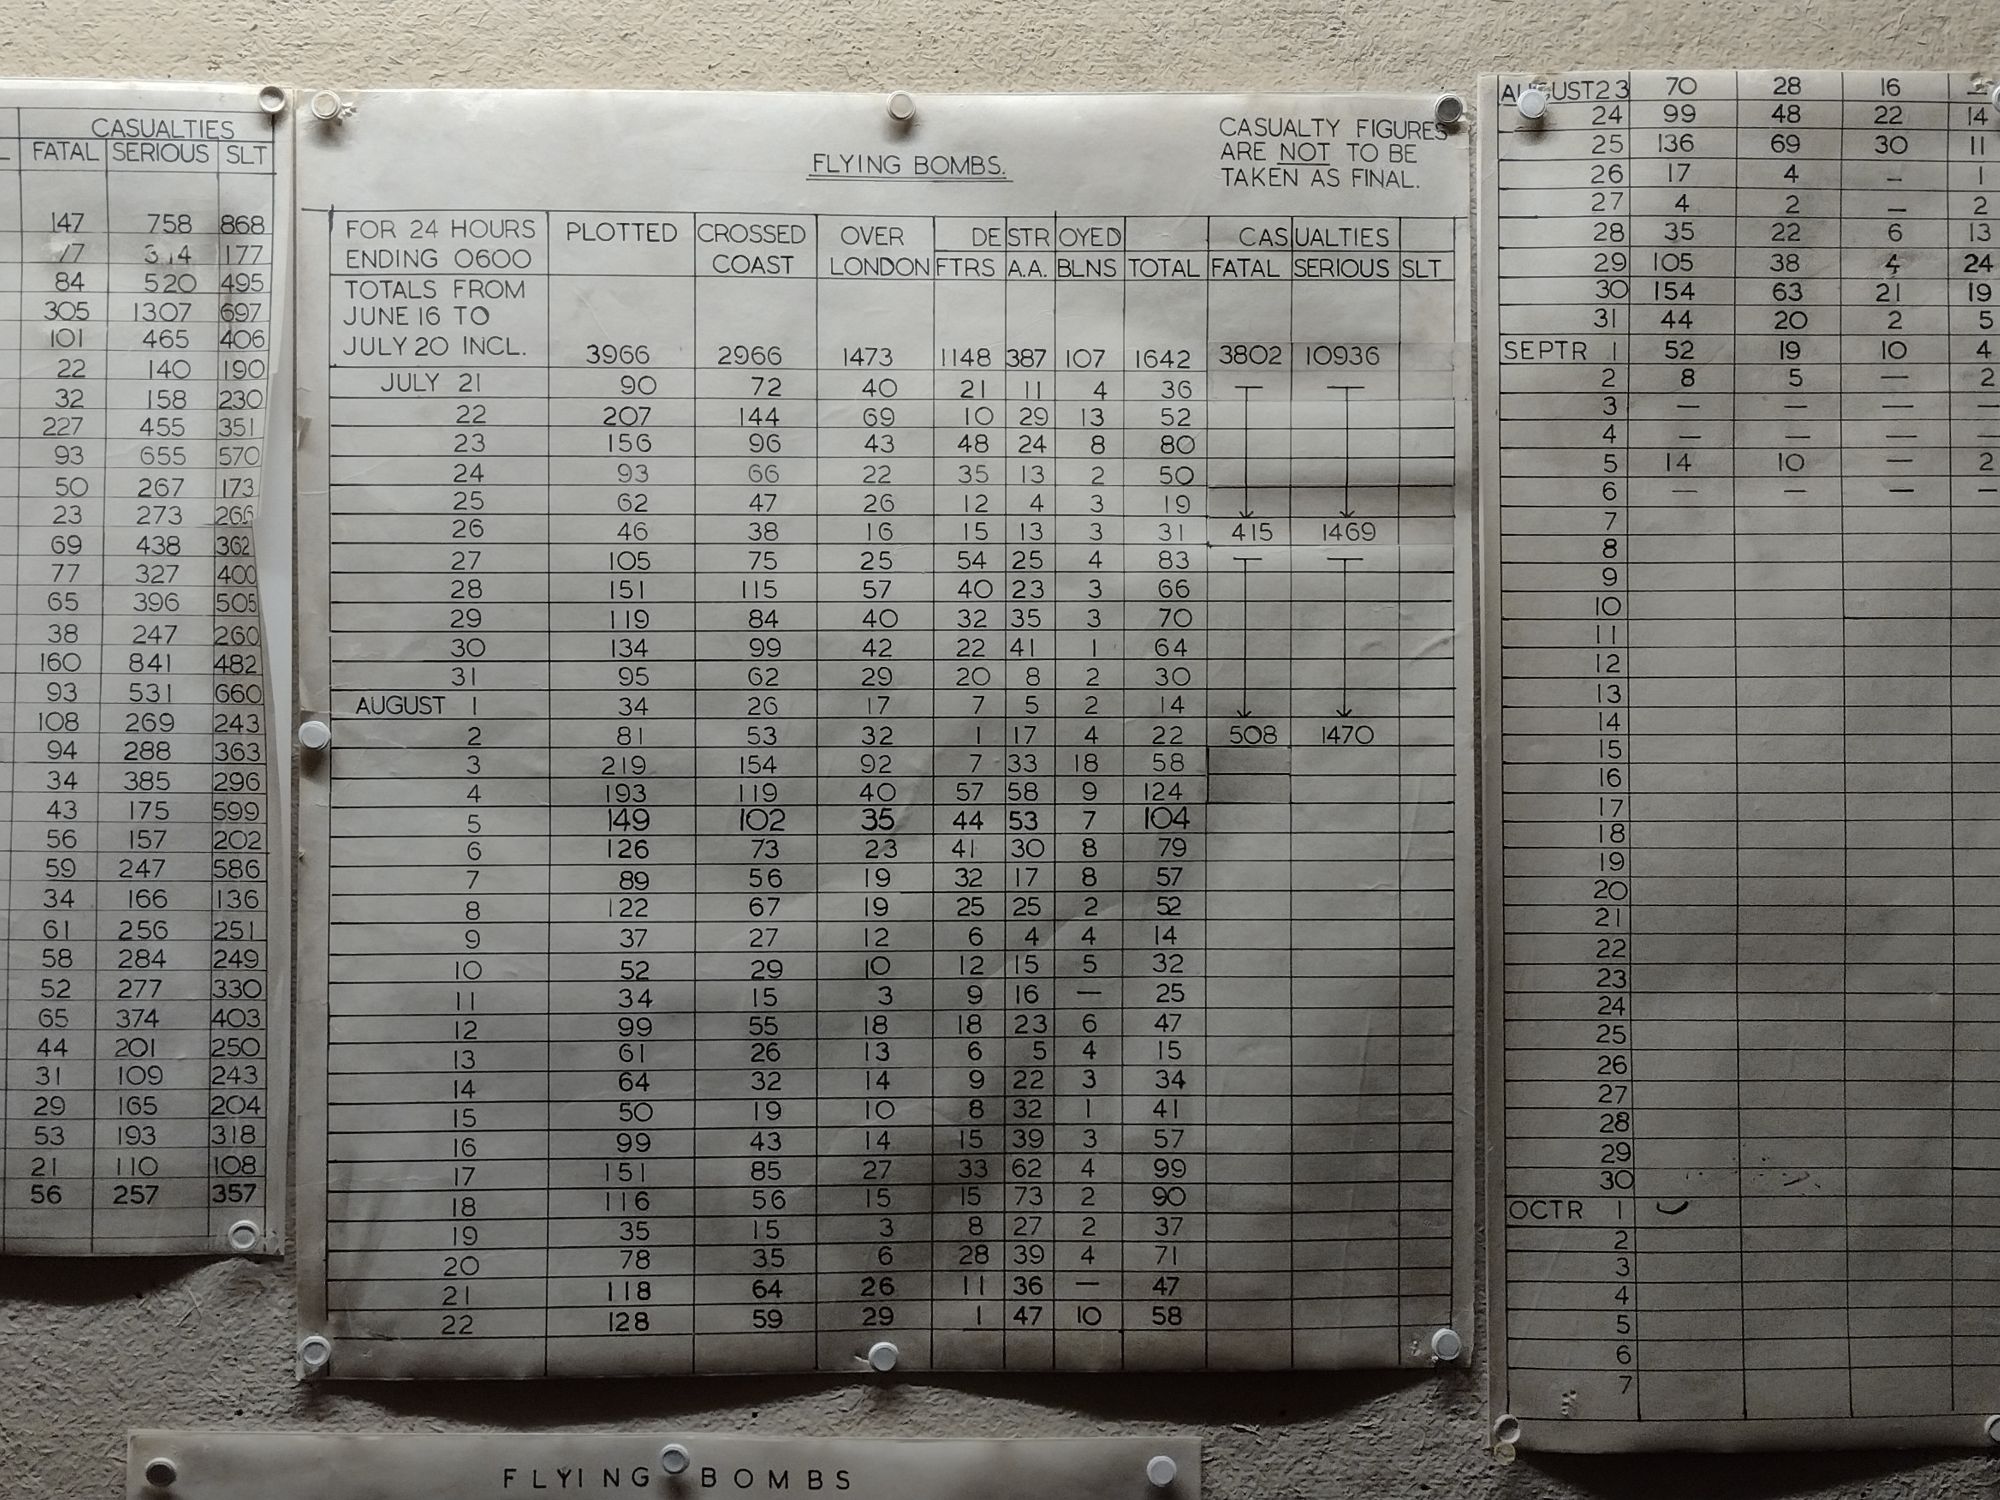 CASUALTIES
FATAL SERIOUS SLT
147 758 868
77 177
84 520 495
305 1307 697
101 465 406
22 140 190
32 158 230
227 455 351
93 655 570
50 267 173
23 273 266
69 438 362
77 327 400
65 396 505
38 247 260
160 841 482
93 531 660
108 269 243
94 288 363
34 385 296
43 175 599
56 157 202
59 247 586
34 166 136
61 256 251
58 284 249
52 277 330
65 374 403
44 201 250
31 109 243
29 165 204
53 193 318
21 110 108
56 257 357
FLYING BOMBS.
CASUALTY FIGURES
ARE NOT TO BE
TAKEN AS FINAL.
FOR 24 HOURS ENDING 0600 PLOTTED CROSSED COAST OVER LONDON DESTROYED CASUALTIES
FTRS A.A. BLNS TOTAL FATAL SERIOUS SLT
TOTALS FROM
JUNE 16 TO
JULY 20 INCL. 3966 2966 1473 1148 387 107 1642 3802 10936
JULY 21 90 72 40 21 11 4 36
22 207 144 69 10 29 13 52
23 156 96 43 48 24 8 80
24 93 66 22 35 13 2 50
25 62 47 26 12 4 3 19
26 46 38 16 15 13 3 31 415 1469
27 105 75 25 54 25 4 83
28 151 115 57 40 23 3 66
29 119 84 40 32 35 3 70
30 134 99 42 22 41 1 64
31 95 62 29 20 8 2 30
AUGUST 1 34 26 17 7 5 2 14
2 81 53 32 1 17 4 22 508 1470
3 219 154 92 7 33 18 58
4 193 119 40 57 58 9 124
5 149 102 35 44 53 7 104
6 126 73 23 41 30 8 79
7 89 56 19 32 17 8 57
8 122 67 19 25 25 2 52
9 37 27 12 6 4 4 14
10 52 29 10 12 15 5 32
11 34 15 3 9 16 — 25
12 99 55 18 18 23 6 47
13 61 26 13 6 5 4 15
14 64 32 14 9 22 3 34
15 50 19 10 8 32 1 41
16 99 43 14 15 39 3 57
17 151 85 27 33 62 4 99
18 116 56 15 15 73 2 90
19 35 15 3 8 27 2 37
20 78 35 6 28 39 4 71
21 118 64 26 11 36 — 47
22 128 59 29 1 47 10 58
AUGUST 23 70 28 16
24 99 48 22 14
25 136 69 30 11
26 17 4 — 1
27 4 2 — 2
28 35 22 6 13
29 105 38 4 24
30 154 63 21 19
31 44 20 2 5
SEPTR 1 52 19 10 4
2 8 5 — 2
3 — — — —
4 — — — —
5 14 10 — 2
6 — — — —
7
8
9
10
11
12
13
14
15
16
17
18
19
20
21
22
23
24
25
26
27
28
29
30
OCTR 1
2
3
4
5
6
7
FLYING BOMBS